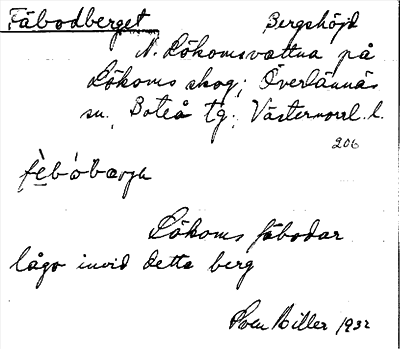 Fäbodberget Bergshöjd
N. Lökomsvattna på
Lökoms skog; Överlännäs
sn, Boteå tg; Västernorrl. l.
206
Lökoms fäbodar
lågo invid detta berg
Sven Biller 1932